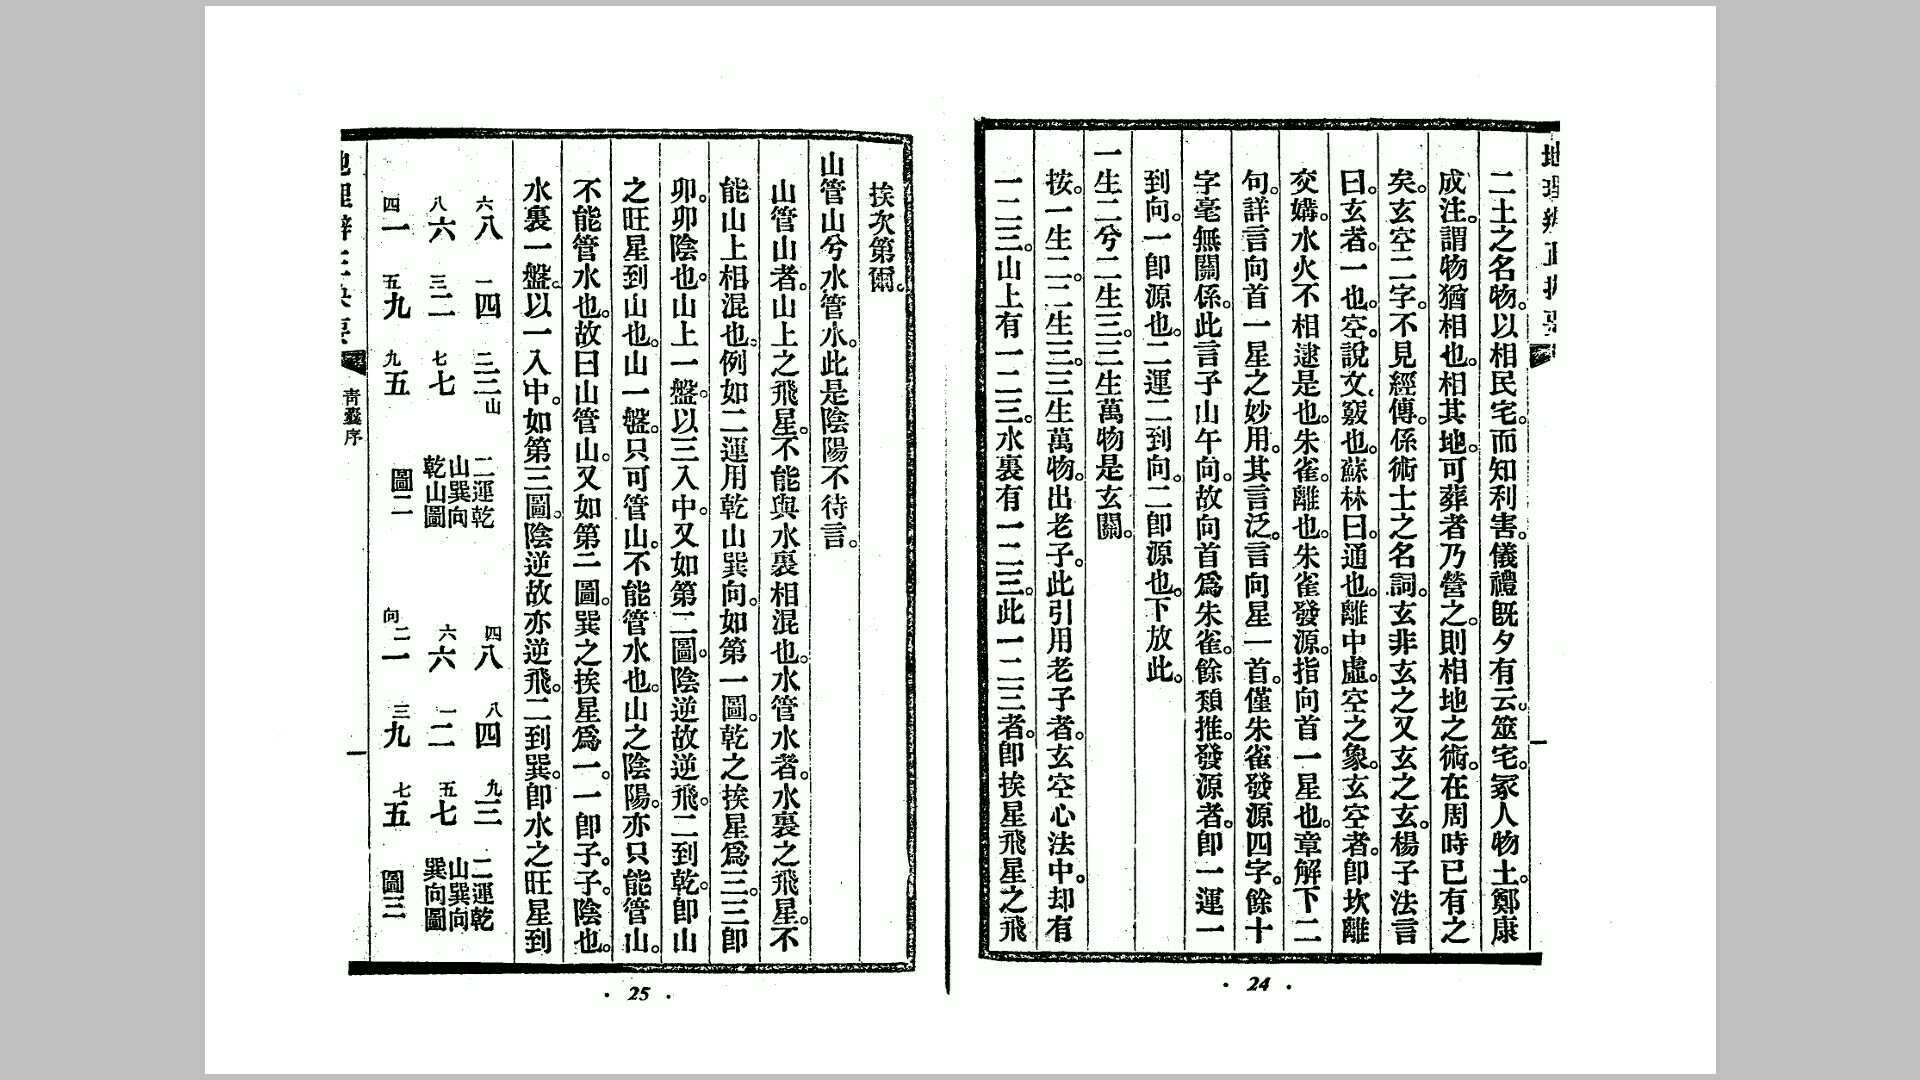 二土之名物。以相民宅。而知利害。儀禮旣夕有云。筮宅。冢人物土。鄭康
成注。謂物猶相也。相其地。可葬者乃營之。則相地之術。在周時已有之
矣。玄空二字。不見經傳。係術士之名詞。玄非玄之又玄之玄。楊子法言
曰。玄者。一也。空。說文。竅也。蘇林曰。通也。離中虛。空之象。玄空者。卽坎離
交媾。水火不相逮是也。朱雀。離也。朱雀發源。指向首一星也。章解下二
句。詳言向首一星之妙用。其言泛。言向星一首。僅朱雀發源四字。餘十
字毫無關係。此言子山午向。故向首爲朱雀。餘類推。發源者。卽一運一
到向。一卽源也。二運二到向。二卽源也。下放此。
一生二兮二生三。三生萬物是玄關。
按。一生二。二生三。三生萬物。出老子。此引用老子者。玄空心法中。却有
一二三。山上有一二三。水裏有一二三。此一二三者。卽挨星飛星之飛
· 24 ·
挨次第爾。
山管山兮水管水。此是陰陽不待言。
山管山者。山上之飛星。不能與水裏相混也。水管水者。水裏之飛星。不
能山上相混也。例如二運用乾山巽向。如第一圖。乾之挨星爲三。三卽
卯。卯陰也。山上一盤。以三入中。又如第二圖。陰逆故逆飛。二到乾。卽山
之旺星到山也。山一盤。只可管山。不能管水也。山之陰陽。亦只能管山。
不能管水也。故曰山管山。又如第二圖。巽之挨星爲一。一卽子。子。陰也。
水裏一盤。以一入中。如第三圖。陰逆故亦逆飛。二到巽。卽水之旺星到
六八 一四 二三山
八六 三二 七七
四一 五九 九五
二運乾
山巽向
乾山圖
圖二
四八 八四 九三
六六 一二 五七
向二一 三九 七五
二運乾
山巽向
巽向圖
圖三
青囊序
· 25 ·